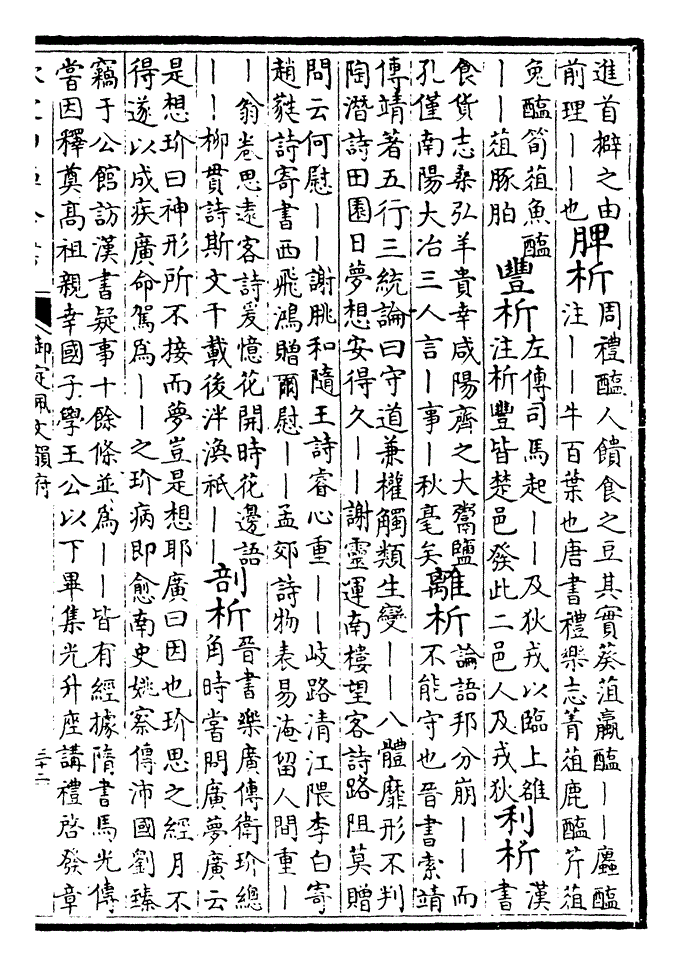 進首擗之由
前理——也
脾析
周禮醢人饋食之豆其實葵菹蠃醢——麤醢
注——牛百葉也唐書禮樂志菁菹鹿醢芹菹
兔醢筍菹魚醢
——菹豚胉
豐析
左傳司馬起——及狄戎以臨上雒
注析豐皆楚邑發此二邑人及戎狄
利析
漢
書
食貨志桑弘羊貴幸咸陽齊之大鬻鹽
孔僅南陽大冶三人言—事—秋毫矣
離析
論語邦分崩——而
不能守也晉書索靖
傳靖著五行三統論曰守道兼權觸類生變——八體靡形不判
陶潛詩田園日夢想安得久——謝靈運南樓望客詩路阻莫贈
問云何慰——謝朓和隨王詩睿心重——岐路清江隈李白寄
趙蕤詩寄書西飛鴻贈爾慰——孟郊詩物表易淹留人間重—
—翁卷思遠客詩爰憶花開時花邊語
——柳貫詩斯文千載後泮渙祇——
剖析
晉書樂廣傳衛玠總
角時嘗問廣夢廣云
是想玠曰神形所不接而夢豈是想耶廣曰因也玠思之經月不
得遂以成疾廣命駕爲——之玠病即愈南史姚察傳沛國劉臻
竊于公館訪漢書疑事十餘條並爲——皆有經據隋書馬光傳
嘗因釋奠高祖親幸國子學王公以下畢集光升座講禮啓發章
御定佩文韻府
三十二